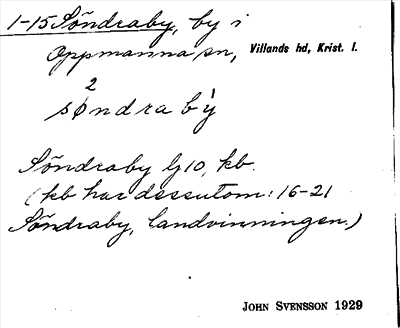 1-15 Söndraby, by i
Oppmanna sn, Villands hd, Krist. l.
2
søndraby̍
Söndraby lj10, kb.
(kb har dessutom: 16-21
Söndraby, landvinningen.)
JOHN SVENSSON 1929